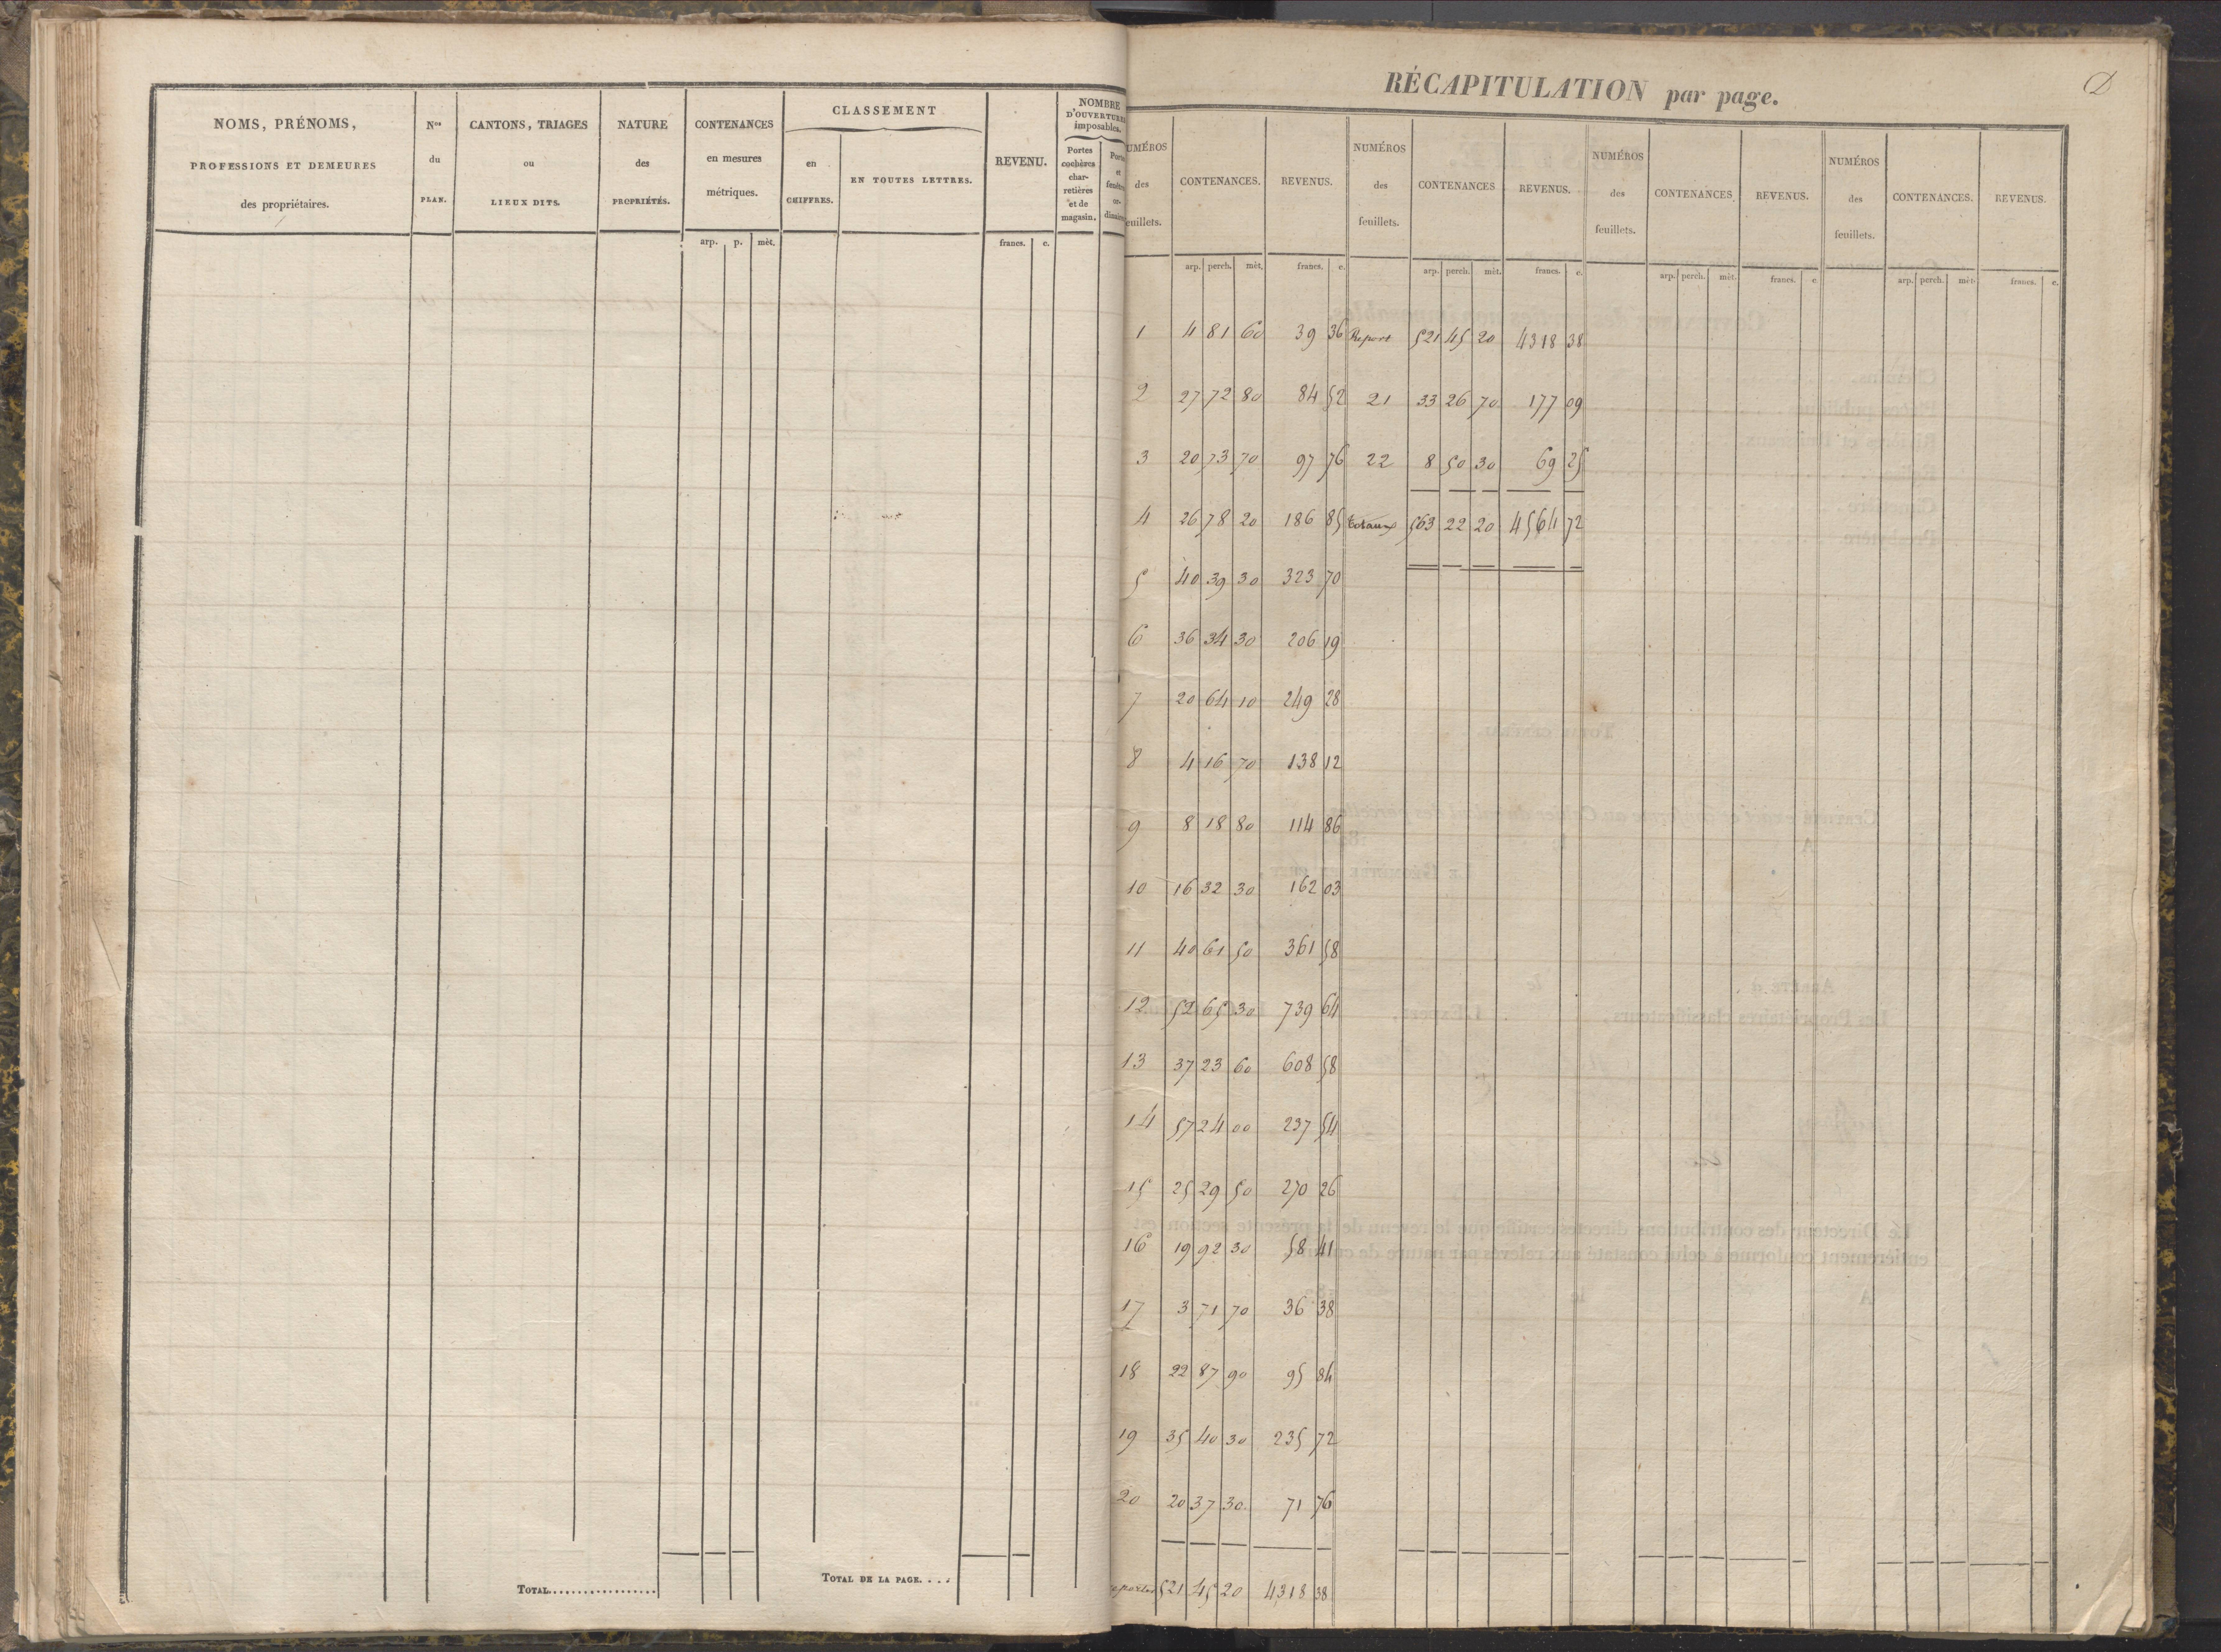 NOMS, PRÉNOMS,
PROFESSIONS ET DEMEURES
des propriétaires.
Nos
du
PLAN.
CANTONS, TRIAGES
ou
LIEUX DITS.
NATURE
des
PROPRIÉTÉS.
CONTENANCES
en mesures
métriques.
arp. p. mèt.
CLASSEMENT
en
CHIFFRES.
EN TOUTES LETTRES.
REVENU.
francs. c.
NOMBRE
D'OUVERTURES
imposables.
Portes
cochères
char-
retières
et de
magasin.
Portes
et
fenêtres
or-
dinaires
TOTAL..................
TOTAL DE LA PAGE. . . .
RÉCAPITULATION par page.
D
NUMÉROS des feuillets. CONTENANCES. REVENUS. NUMÉROS des feuillets. CONTENANCES REVENUS. NUMÉROS des feuillets. CONTENANCES REVENUS. NUMÉROS des feuillets. CONTENANCES. REVENUS.
arp. perch. mèt. francs. c. arp. perch. mèt. francs. c. arp. perch. mèt. francs. c. arp. perch. mèt. francs. c.
1 4 81 60 39 36 Report 521 45 20 4318 38
2 27 72 80 84 52 21 33 26 70 177 09
3 20 73 70 97 76 22 8 50 30 69 25
4 26 78 20 186 85 totaux 563 22 20 4564 72
5 40 39 30 323 70
6 36 34 30 206 19
7 20 64 10 249 28
8 4 16 70 138 12
9 8 18 80 114 86
10 16 32 30 162 03
11 40 61 50 361 58
12 52 65 30 739 64
13 37 23 60 608 58
14 57 24 00 237 54
15 25 29 50 270 26
16 19 92 30 58 41
17 3 71 70 36 38
18 22 87 90 95 84
19 35 40 30 235 72
20 20 37 30 71 76
reporter 521 45 20 4318 38